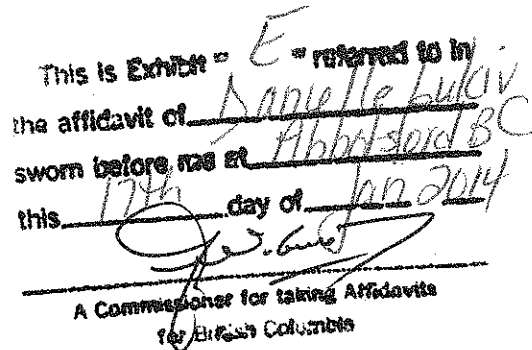 This is Exhibit " E " referred to in
the affidavit of Danielle Lukiv
sworn before me at Abbotsford BC
this 17th day of Jan 2014
A Commissioner for taking Affidavits
for British Columbia